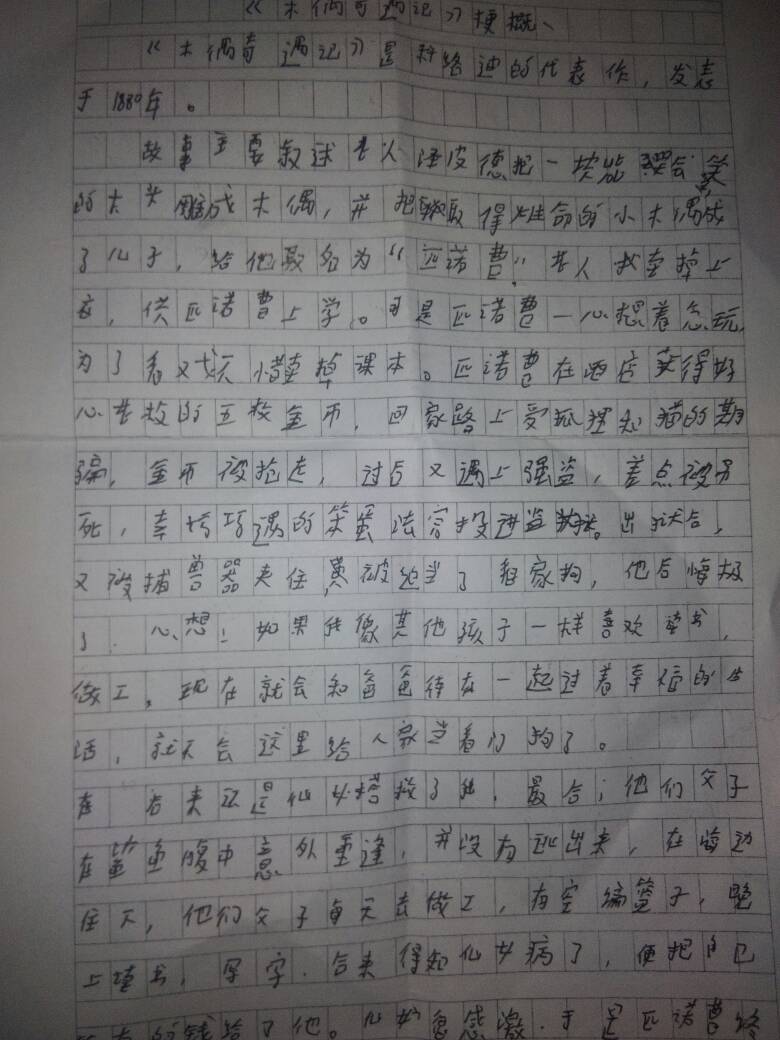 《木偶奇遇记》梗概、
《木偶奇遇记》是科洛迪的代表作，发表
于1880年。
故事主要叙述老人泽皮德把一块能哭会笑
的木头雕成木偶，并把取得生命的小木偶成
了儿子，给他取名为“匹诺曹”。老人卖掉上
衣，供匹诺曹上学。可是匹诺曹一心想着贪玩，
为了看戏不惜卖掉课本。匹诺曹在酒店获得好
心老板的五枚金币，回家路上受狐狸和猫的欺
骗，金币被抢走，过后又遇上强盗，差点被吊
死，幸 遇的笨蛋法官投进监狱。出狱后，
又被捕兽器夹住，被当了看家狗，他后悔极
了，心想！如果能像其他孩子一样喜欢读书，
做工，现在就会和爸爸待在一起过着幸福的生
活，就不会这里给人家当看门狗了。
在 后来还是仙女搭救了他，最后；他们父子
在鲨鱼腹中意外重逢，并设有逃出来，在
住下，他们父子每天去做工，有空编篮子，晚
上读书，写字．后来得知仙女病了，便把自己
的钱给了他。仙女 感激．于是匹诺曹终